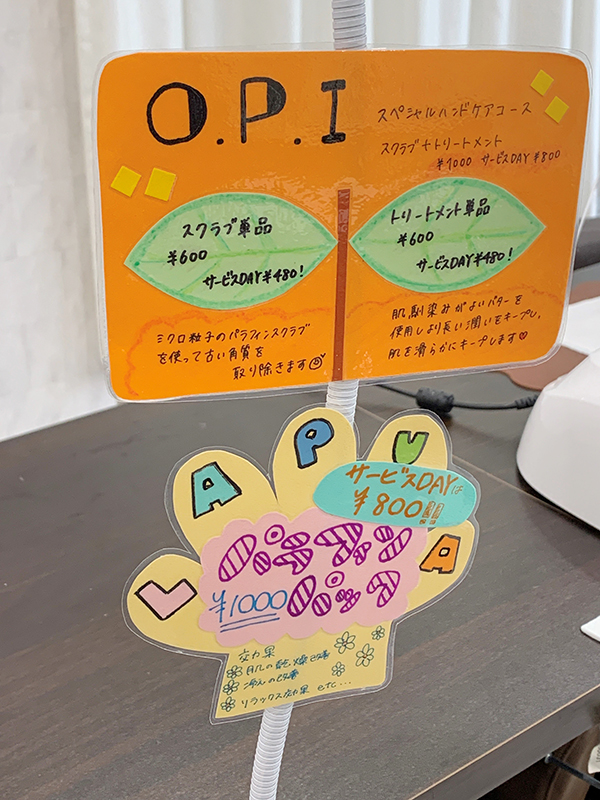 O.P.I
スペシャルハンドケアコース
スクラブ+トリートメント
¥1000 サービスDAY ¥800
スクラブ単品
¥600
サービスDAY¥480!
トリートメント単品
¥600
サービスDAY¥480!
ミクロ粒子のパラフィンスクラブ
を使って古い角質を
取り除きます
肌馴染みがよいバターを
使用しより長い潤いをキープし、
肌を滑らかにキープします♡
LAPUA
サービスDAYは
¥800
ハンドマッサ
¥1000
効果
肌の乾燥改善
冷えの改善
リラックス効果 etc...